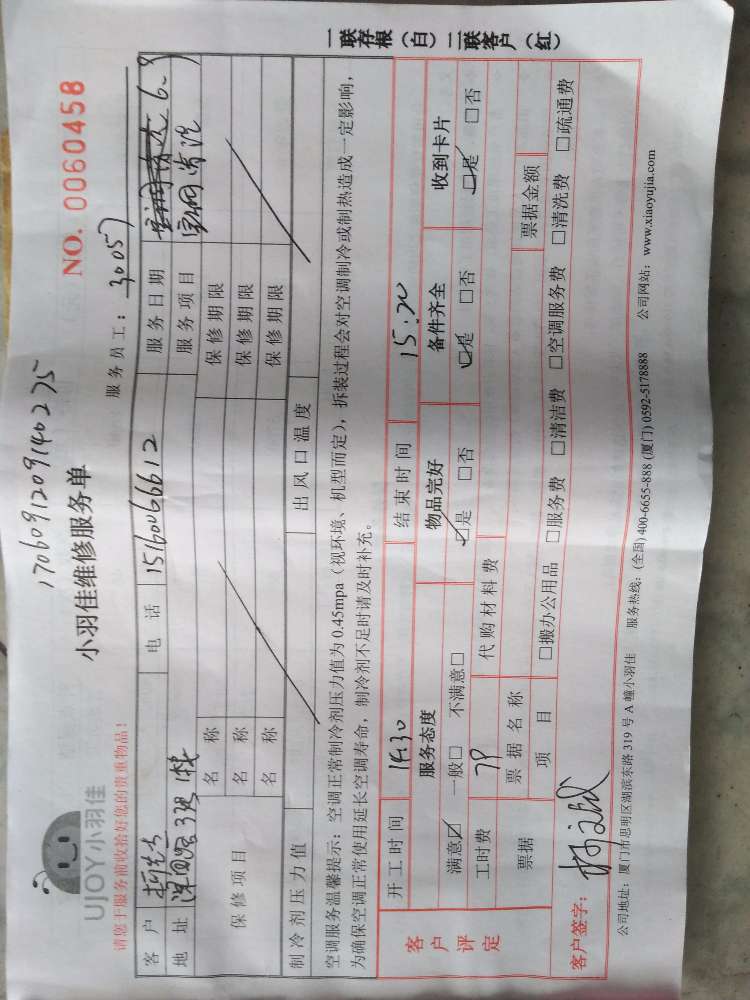 1706091209140275
UJOY小羽佳
小羽佳维修服务单
NO. 0060458
请您于服务前收拾好您的贵重物品!
服务员工: 30057
客户 电话 15160066612 服务日期 6-9
地址 服务项目 空调清洗
保修项目 名称 保修期限
名称 保修期限
名称 保修期限
制冷剂压力值 出风口温度
空调服务温馨提示:空调正常制冷剂压力值为 0.45mpa(视环境、机型而定),拆装过程会对空调制冷或制热造成一定影响,
为确保空调正常使用延长空调寿命,制冷剂不足时请及时补充。
一联存根(白) 二联客户(红)
客户评定
开工时间 14:30 结束时间 15:20
服务态度 物品完好 备件齐全 收到卡片
满意☑ 一般□ 不满意□ ☑是 □否 ☑是 □否 ☑是 □否
工时费 79 代购材料费
票据 票据名称 票据金额
项目 □搬办公用品 □服务费 □清洁费 □空调服务费 □清洗费 □疏通费
客户签字:
公司地址:厦门市思明区湖滨东路 319 号 A 幢小羽佳 服务热线:(全国) 400-6655-888 (厦门) 0592-5178888 公司网站:www.xiaoyujia.com